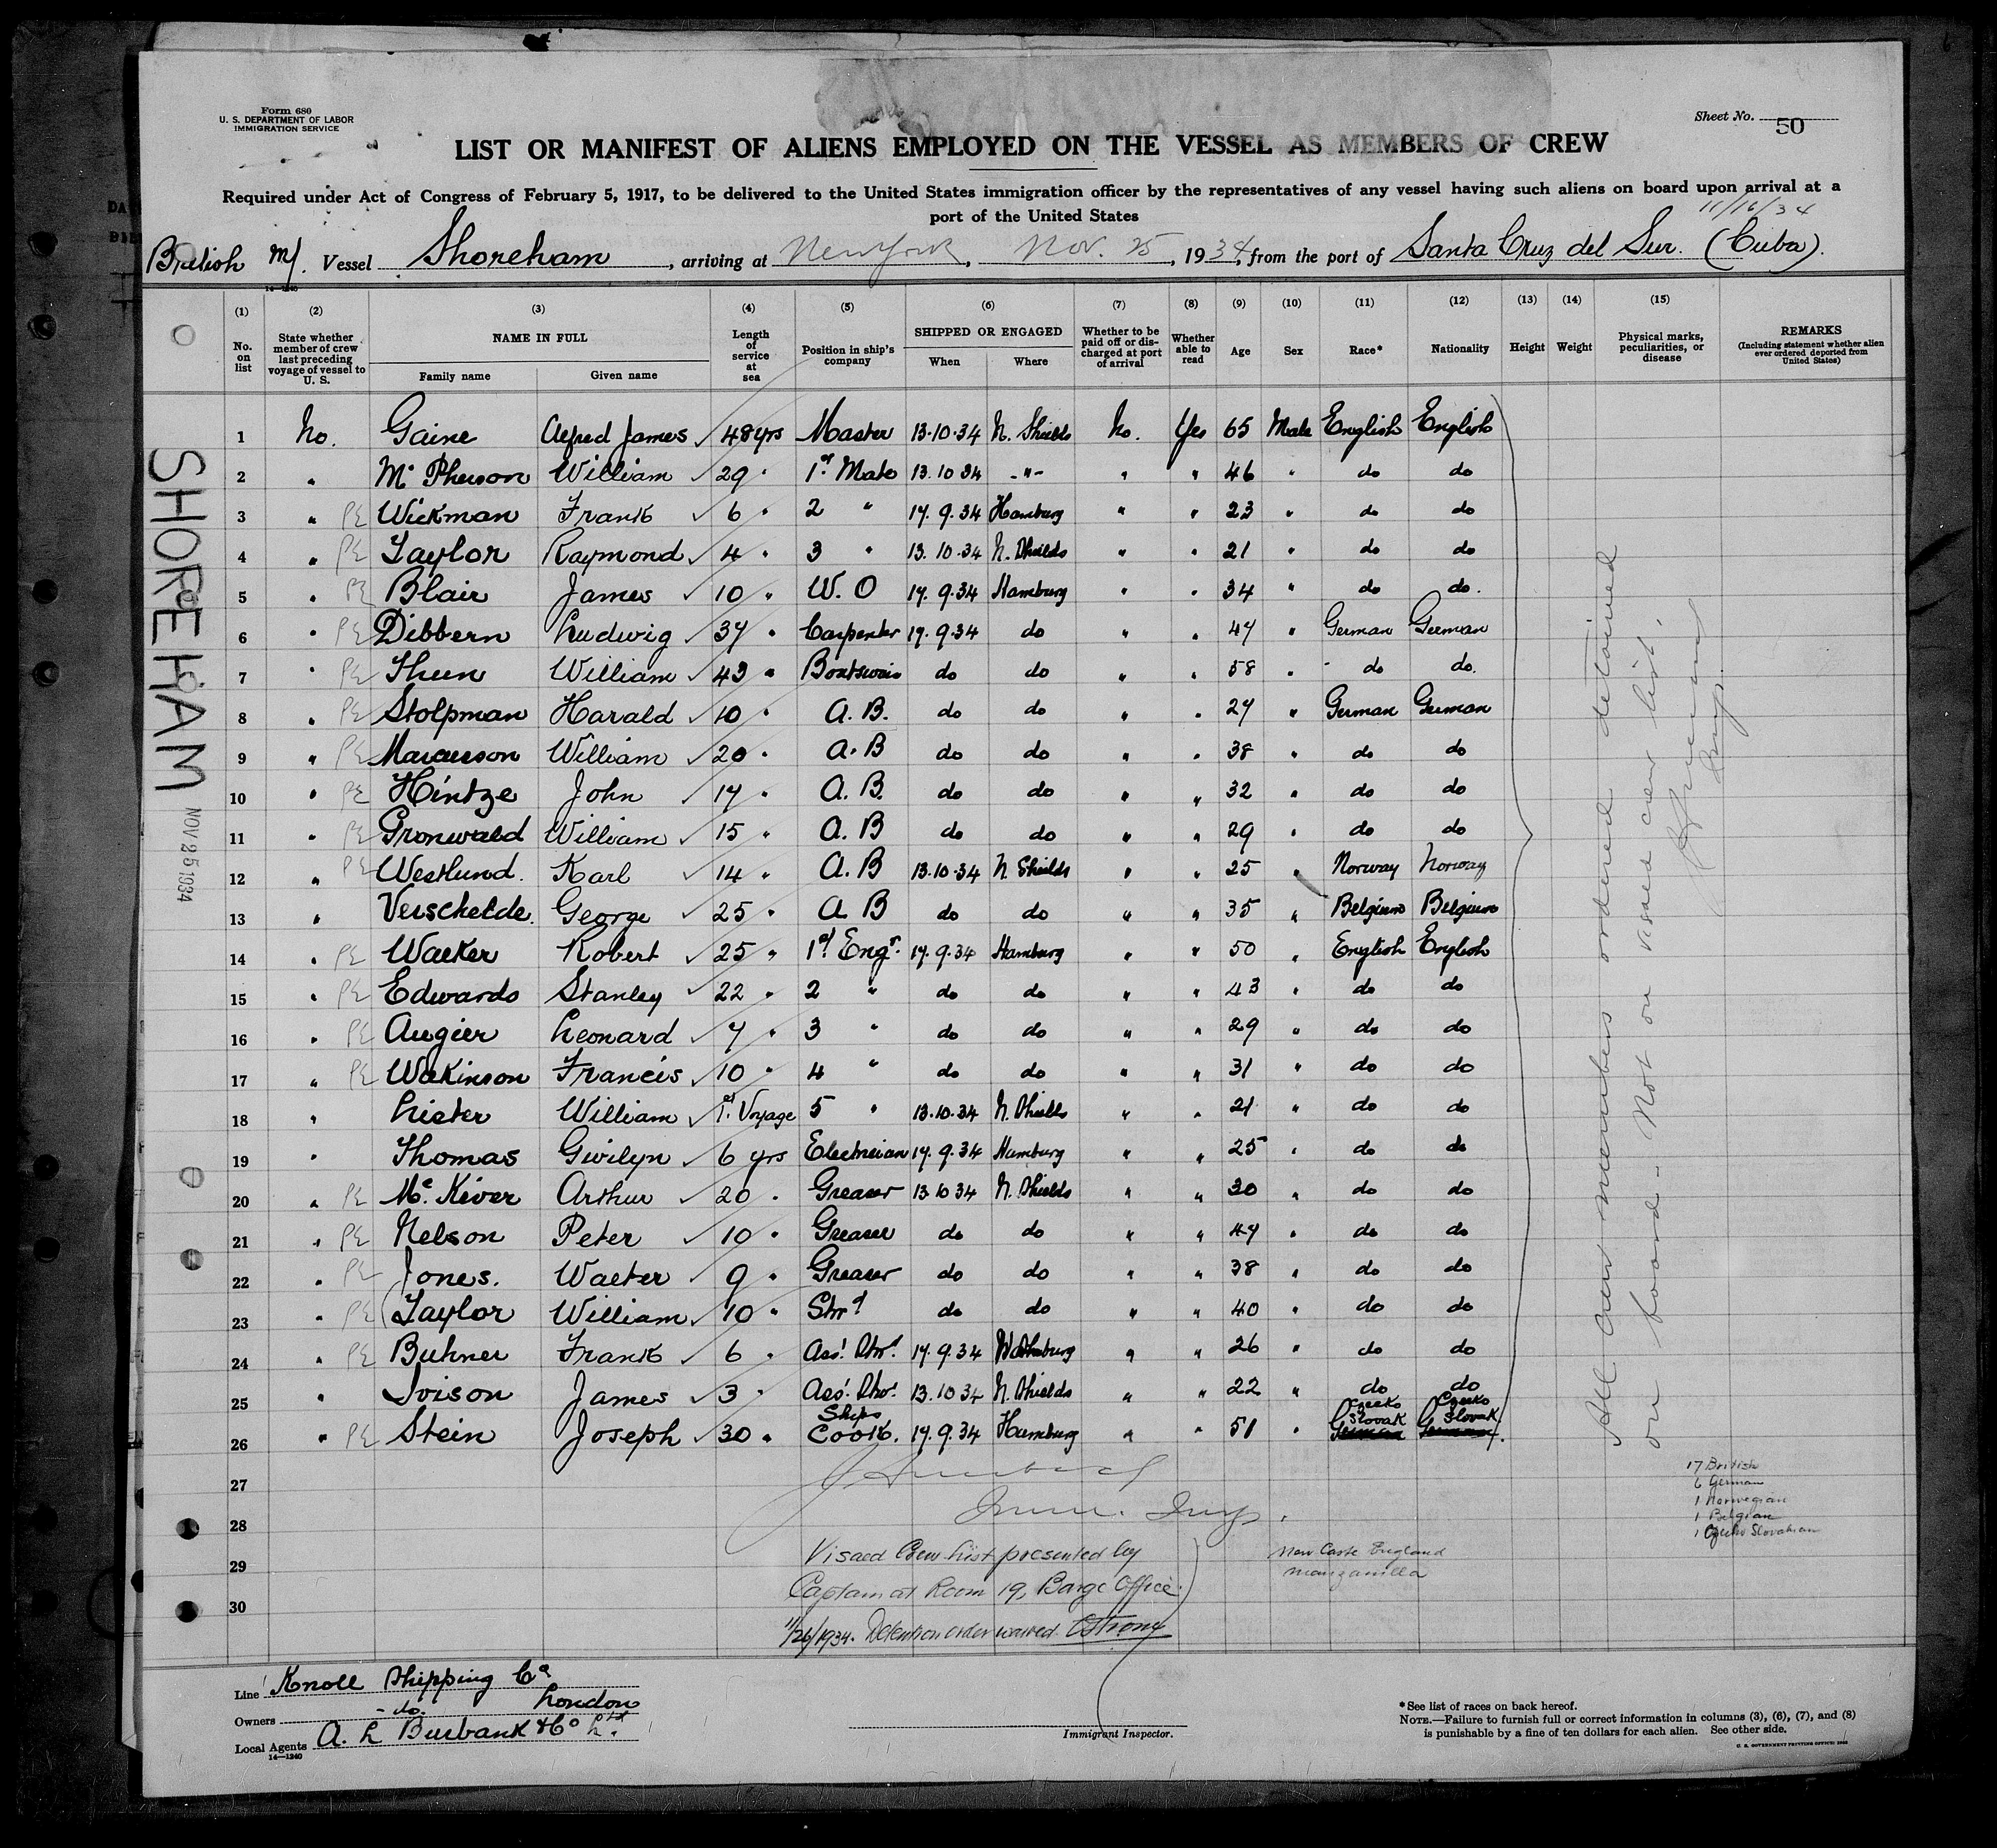 Form 680
U. S. DEPARTMENT OF LABOR
IMMIGRATION SERVICE
Sheet No. 50
LIST OR MANIFEST OF ALIENS EMPLOYED ON THE VESSEL AS MEMBERS OF CREW
Required under Act of Congress of February 5, 1917, to be delivered to the United States immigration officer by the representatives of any vessel having such aliens on board upon arrival at a
port of the United States
11/16/34
British M/. Vessel Shoreham, arriving at New York, Nov. 25, 1934, from the port of Santa Cruz del Sur. (Cuba).
14—1240
(1) (2) (3) (4) (5) (6) (7) (8) (9) (10) (11) (12) (13) (14) (15)
No. on list
State whether member of crew last preceding voyage of vessel to U. S.
NAME IN FULL
Family name Given name
Length of service at sea
Position in ship's company
SHIPPED OR ENGAGED
When Where
Whether to be paid off or discharged at port of arrival
Whether able to read
Age
Sex
Race*
Nationality
Height
Weight
Physical marks, peculiarities, or disease
REMARKS
(Including statement whether alien ever ordered deported from United States)
1 No. Gaine Alfred James 48 yrs Master 13.10.34 N. Shields No. Yes 65 Male English English
2 " McPherson William 29 " 1st Mate 13 10 34 -"- " " 46 " do do
3 " PE Wickman Frank 6 " 2 " 17. 9. 34 Hamburg " " 23 " do do
4 " PE Taylor Raymond 4 " 3 " 13. 10. 34 N. Shields " " 21 " do do
5 " PE Blair James 10 " W. O 17. 9. 34 Hamburg " " 34 " do do.
6 " PE Dibbern Ludwig 37 " Carpenter 17. 9. 34 do " " 47 " German German
7 " PE Thun William 43 " Boatswain do do " " 58 " do do.
8 " PE Stolpman Harald 10 " A. B. do do " " 27 " German German
9 " PE Marcusson William 20 " A. B do do " " 38 " do do
10 " PE Hintze John 17 " A. B. do do " " 32 " do do
11 " PE Gronwald William 15 " A. B do do " " 29 " do do
12 " PE Westlund. Karl 14 " A. B 13.10.34 N Shields " " 25 " Norway Norway
13 " Verschelde. George 25 " A B do do " " 35 " Belgium Belgium
14 " PE Walker Robert 25 " 1st Engr. 17. 9. 34 Hamburg " " 50 " English English
15 " PE Edwards Stanley 22 " 2 " do do " " 43 " do do
16 " PE Augier Leonard 7 " 3 " do do " " 29 " do do
17 " PE Wilkinson Francis 10 " 4 " do do " " 31 " do do
18 " Lister William 1st Voyage 5 " 13.10.34 N. Shields " " 21 " do do
19 " Thomas Gwilyn 6 yrs Electrician 17. 9. 34 Hamburg " " 25 " do do
20 " PE Mc. Kever Arthur 20 " Greaser 13 10 34 N. Shields " " 30 " do do
21 " PE Nelson Peter 10 " Greaser do do " " 47 " do do
22 " PE Jones. Walter 9 " Greaser do do " " 38 " do do
23 " PE Taylor William 10 " Strd do do " " 40 " do do
24 " PE Buhner Frank 6 " Ass. Strd. 17. 9. 34 Hamburg " " 26 " do do
25 " Ivison James 3 " Ass. Strd. 13. 10 34 N. Shields " " 22 " do do
26 " PE Stein Joseph 30 " Ships Cook. 17. 9. 34 Hamburg " " 51 " Czecko Slovak German Czecko Slovak German
27
28
29
30
Imm. Insp.
Visaed Crew List presented by
Captain at Room 19, Barge Office.
11/26/1934. Detention order waived. CStrong
New Castle England
Manzanilla
17 British
6 German
1 Norwegian
1 Belgian
1 Czecko Slovakian
All crew members ordered detained
on board - Not on visaed crew list.
Insp.
SHOREHAM NOV 25 1934
Line Knoll Shipping Co
London
Owners - do.
Local Agents A. L Burbank & Co Ltd.
14—1240
Immigrant Inspector.
*See list of races on back hereof.
NOTE.—Failure to furnish full or correct information in columns (3), (6), (7), and (8)
is punishable by a fine of ten dollars for each alien. See other side.